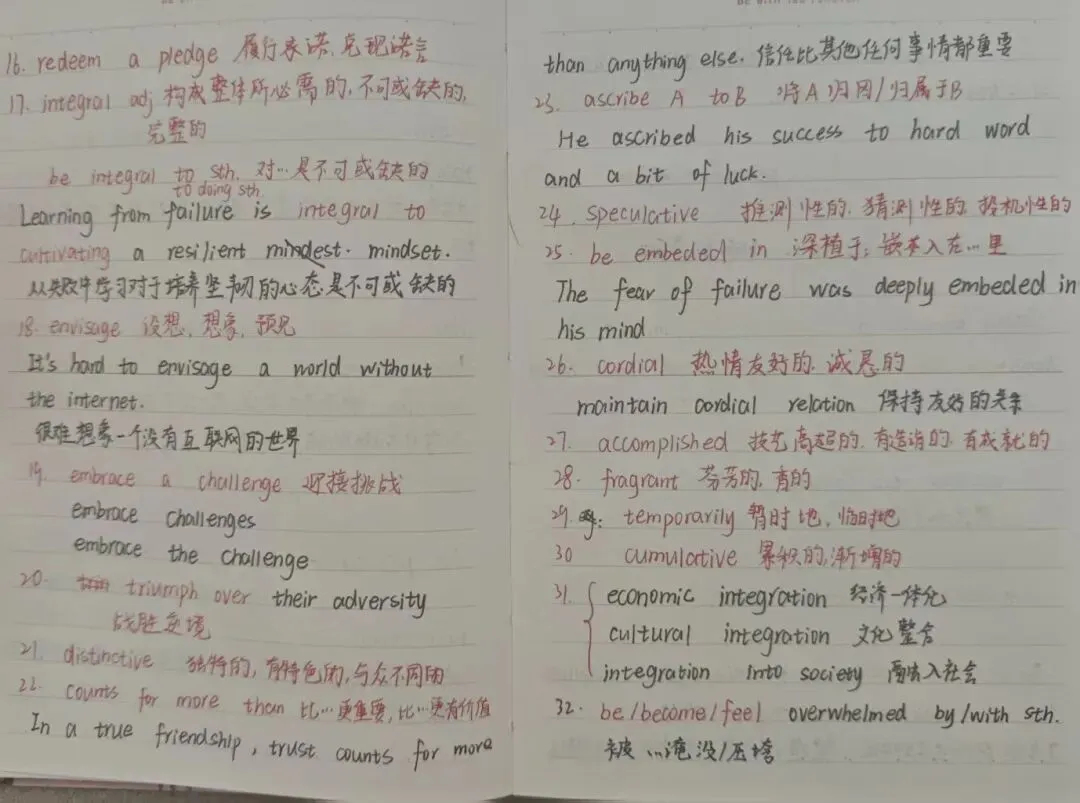 16. redeem a pledge 履行承诺, 兑现诺言
17. integral adj 构成整体所必需的, 不可或缺的,
完整的
be integral to sth. 对…是不可或缺的
to doing sth.
Learning from failure is integral to
cultivating a resilient mindest. mindset.
从失败中学习对于培养坚韧的心态是不可或缺的
18. envisage 设想, 想象, 预见
It's hard to envisage a world without
the internet.
很难想象一个没有互联网的世界
19. embrace a challenge 迎接挑战
embrace challenges
embrace the challenge
20. triumph over their adversity
战胜逆境
21. distinctive 独特的, 有特色的, 与众不同的
22. counts for more than 比…更重要, 比…更有价值
In a true friendship, trust counts for more
than anything else. 信任比其他任何事情都重要
23. ascribe A to B 将A归因/归属于B
He ascribed his success to hard word
and a bit of luck.
24. speculative 推测性的, 猜测性的, 投机性的
25. be embeded in 深植于; 嵌入在…里
The fear of failure was deeply embeded in
his mind
26. cordial 热情友好的, 诚恳的
maintain cordial relation 保持友好的关系
27. accomplished 技艺高超的, 有造诣的, 有成就的
28. fragrant 芬芳的, 香的
29. temporarily 暂时地, 临时地
30 cumulative 累积的, 渐增的
31. economic integration 经济一体化
cultural integration 文化整合
integration into society 融入社会
32. be/become/feel overwhelmed by/with sth.
被…淹没/压垮